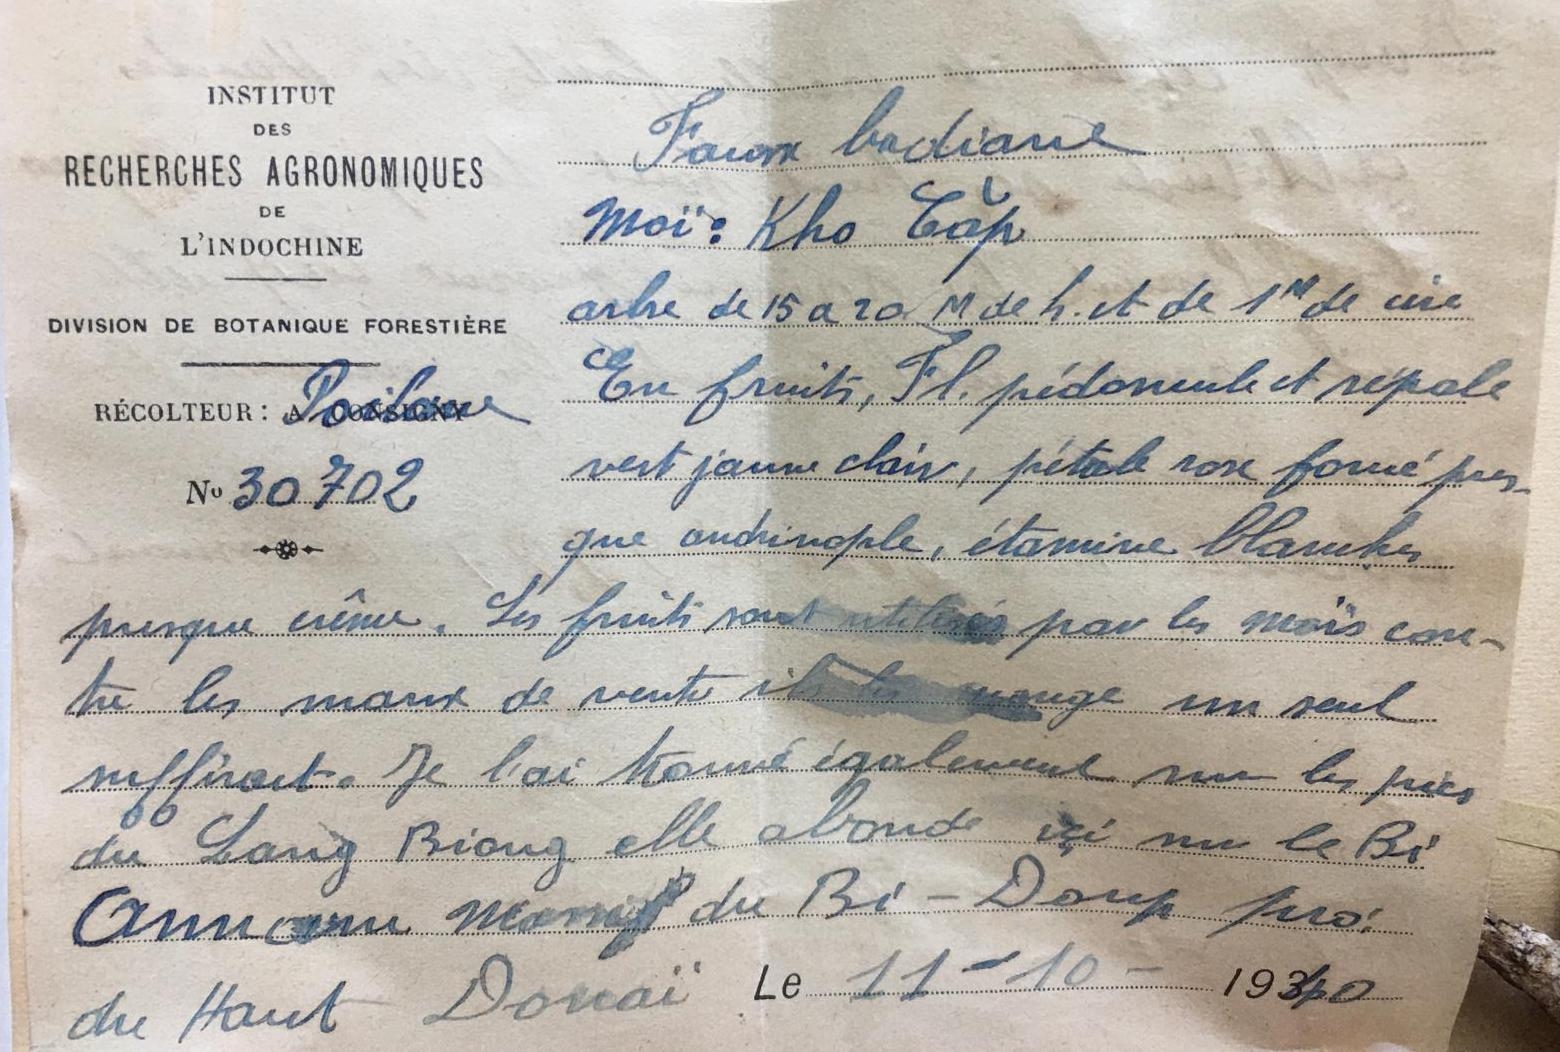 INSTITUT
DES
RECHERCHES AGRONOMIQUES
DE
L'INDOCHINE
DIVISION DE BOTANIQUE FORESTIÈRE
RÉCOLTEUR: A. CONSIGNY Poilane
No 30702
Faux badiane
Moï: Kho Căp
arbre de 15 a 20 M de h. et de 1M de cire
En fruits, Fl. pédoncule et sépale
vert jaune clair, pétale rose foncé pres-
que andrinople, étamine blanches
presque crême. Les fruits sont utilisés par les moïs con-
tre les maux de ventre ils les mange un seul
suffirait. Je l'ai trouvé également sur les pics
du Lang Biang elle abonde ici sur le Bi
Annam du Bi-Doup pro:
du Haut Donaï Le 11-10- 1940